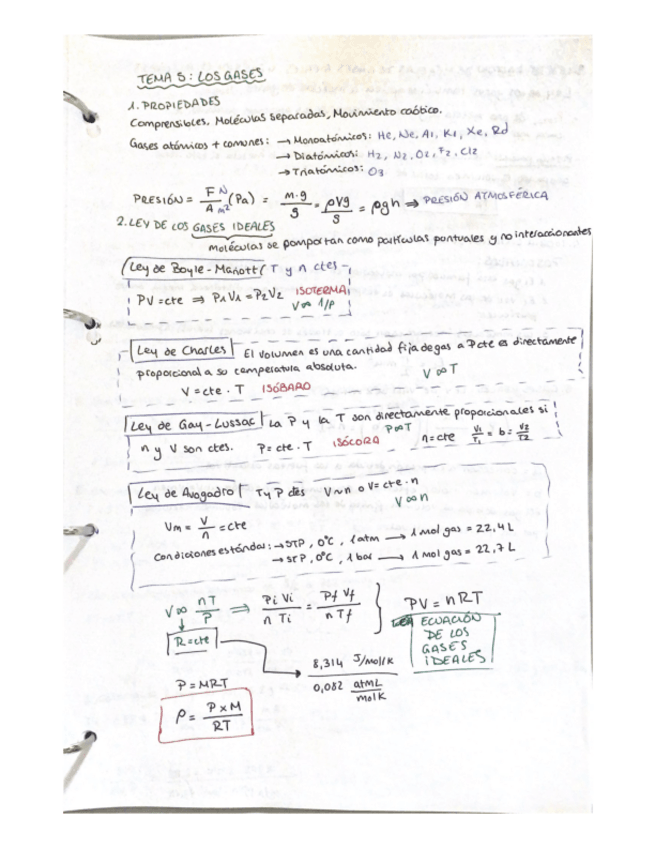 TEMA 5: LOS GASES
1. PROPIEDADES
Comprensibles, Moléculas separadas, Movimiento caótico.
Gases atómicos + comunes: → Monoatómicos: He, Ne, Ar, Kr, Xe, Rd
→ Diatómicos: H2, N2, O2, F2, Cl2
→ Triatómicos: O3
PRESIÓN = F N / A m² (Pa) = m·g / S = ρVg / S = ρgh ⇒ PRESIÓN ATMOSFÉRICA
2. LEY DE LOS GASES IDEALES
moléculas se comportan como partículas puntuales y no interaccionantes
Ley de Boyle-Mariott T y n ctes
PV = cte ⇒ P1V1 = P2V2 ISOTERMA
V∝ 1/P
Ley de Charles El volumen es una cantidad fija de gas a P cte es directamente
proporcional a su temperatura absoluta. V∝T
V = cte · T ISÓBARO
Ley de Gay-Lussac La P y la T son directamente proporcionales si
n y V son ctes. P = cte · T ISÓCORA P∝T n = cte V1/T1 = b = V2/T2
Ley de Avogadro T y P V∝n o V = cte · n
V∝n
Vm = V/n = cte
Condiciones estándar: → STP, 0°C, 1 atm → 1 mol gas = 22,4 L
→ STP, 0°C, 1 bar → 1 mol gas = 22,7 L
V∝ nT/P ⇒ Pi Vi / n Ti = Pf Vf / n Tf } PV = nRT
R = cte
ECUACIÓN
DE LOS
GASES
IDEALES
8,314 J/mol/K
0,082 atmL / molK
P = MRT
ρ = P x M / RT